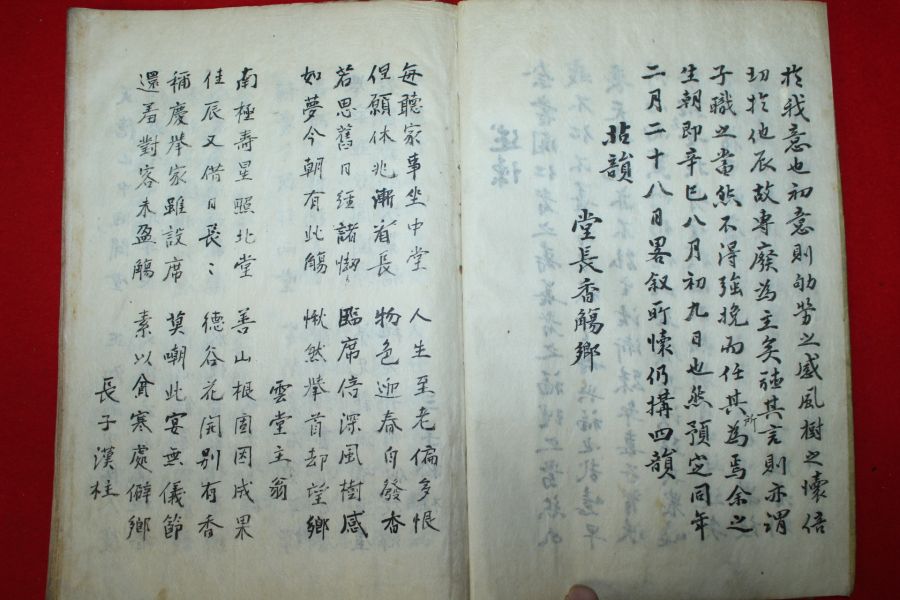 於我意也初意則劬勞之感風樹之懷倍
切於他辰故專廢為主矣聽其言則亦謂
子職之當然不得強挽而任其所為焉余之
生朝即辛巳八月初九日也然預定同年
二月二十八日畧叙所懷仍搆四韻
拈韻 堂長香觴鄉
每聽家事坐中堂 人生至老偏多恨
但願休兆漸看長 物色迎春自發香
若思舊日經諸 臨席倍深風樹感
如夢今朝有此觴 愀然擧首却望鄉
雲堂主翁
南極壽星照北堂 善山根固因成果
佳辰又借日長ミ 德谷花開別有香
稱慶擧家雖設席 莫嘲此宴無儀節
還羞對客未盈觴 素以貧寒處僻鄉
長子漢柱